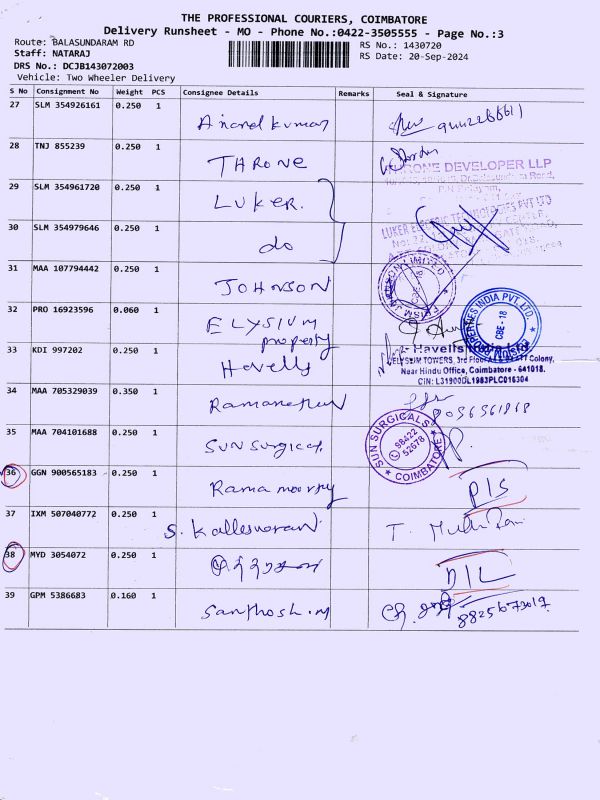 THE PROFESSIONAL COURIERS, COIMBATORE
Delivery Runsheet - MO - Phone No.:0422-3505555 - Page No.:3
Route: BALASUNDARAM RD
Staff: NATARAJ
DRS No.: DCJB143072003
Vehicle: Two Wheeler Delivery
RS No.: 1430720
RS Date: 20-Sep-2024
S No Consignment No Weight PCS Consignee Details Remarks Seal & Signature
27 SLM 354926161 0.250 1 Anand kumar
28 TNJ 855239 0.250 1 THRONE
THRONE DEVELOPER LLP
29 SLM 354961720 0.250 1 LUKER.
LUKER ELECTRIC TECHNOLOGIES PVT LTD
30 SLM 354979646 0.250 1 do
31 MAA 107794442 0.250 1 JOHNSON
32 PRO 16923596 0.060 1 ELYSIUM property
ELYSIUM PROPERTIES INDIA PVT. LTD. CBE - 18
33 KDI 997202 0.250 1 Havells
Havells India Ltd
ELYSIUM TOWERS, 3rd Floor Colony,
Near Hindu Office, Coimbatore - 641018.
CIN: L31900DL1983PLC016304
34 MAA 705329039 0.350 1
35 MAA 704101688 0.250 1 SUN Surgical
SUN SURGICALS 98422 52678 COIMBATORE
36 GGN 900565183 0.250 1 Rama moorthy P/S
37 IXM 507040772 0.250 1 S. Kalleswaran T.
38 MYD 3054072 0.250 1 D/L
39 GPM 5386683 0.160 1 Santhosh.m